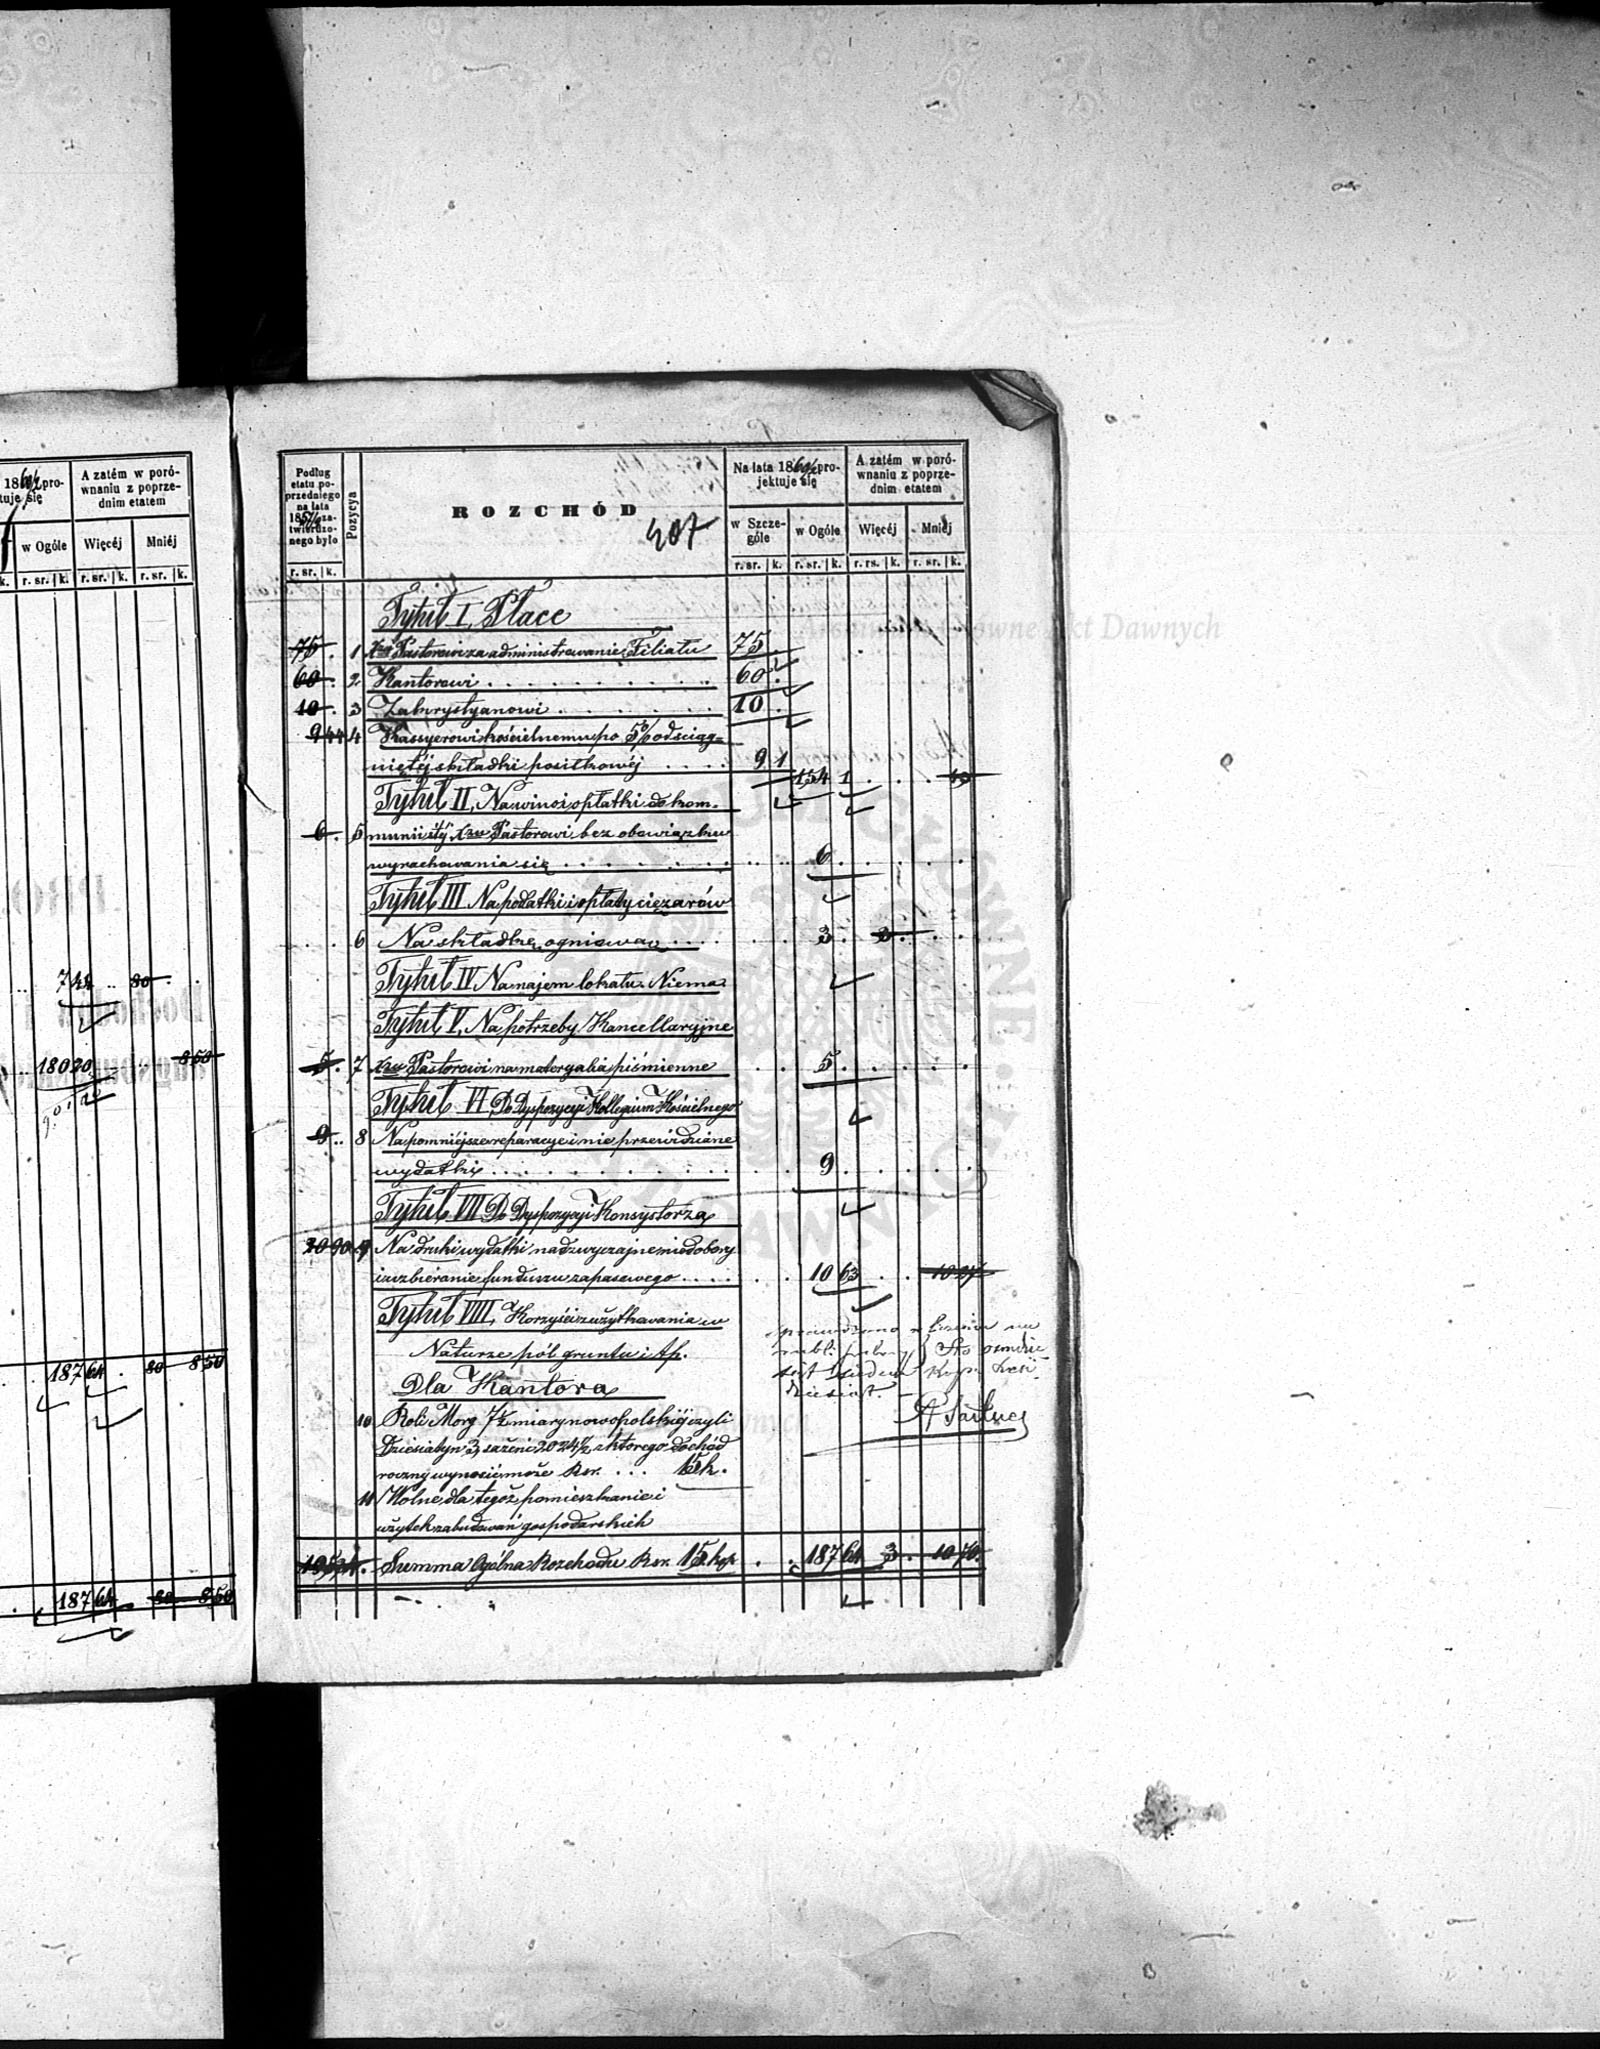 186½ pro-
tuje się
A zatém w poró-
wnaniu z poprze-
dnim etatem
w Ogóle Więcéj Mniéj
k. r. sr. k. r. sr. k. r. sr. k.
744 80
18020 850
187 64 80 850
187 64 80 850
Podług
etatu po-
przedniego
na lata
185 za-
twierdzo-
nego było
Pozycya
ROZCHÓD
407
Na lata 186 pro-
jektuje się
A zatém w poró-
wnaniu z poprze-
dnim etatem
w Szcze-
góle
w Ogóle Więcéj Mniéj
r. sr. k. r. sr. k. r. sr. k. r. rs. k. r. sr. k.
Tytuł I, Płace
75 . 1 Xdzu Pastorowi za administrowanie Filiału 75 .
60 . 2 Kantorowi . . . . . . . . . . 60 .
10 . 3 Zakrystyanowi . . . . . . . 10 .
9 44 4 Kassyerowi kościelnemu po 5% od ściąg=
niętéj składki posiłkowéj . . . . 9 1 154 1
Tytuł II, Na wino i opłatki do kom=
6 . 5 munii śtéj Xdzu Pastorowi bez obowiązku
wyrachowania się . . . . . . . 6
Tytuł III Na podatki i opłaty ciężarów
6 Na składkę ogniową . . . . 3 . 3 .
Tytuł IV Na najem lokalu. Niema
Tytuł V, Na potrzeby Kancellaryjne
5 . 7 Xdzu Pastorowi na materyalia piśmienne 5 .
Tytuł VI, Do Dyspozycyi Kollegium Kościelnego
9 . 8 Na pomniejsze reparacye i nie przewidziane
wydatki . . . . . . . . . 9
Tytuł VII Do Dyspozycyi Konsystorza
20 90 9 Na druki wydatki nadzwyczajne niedobory
i uzbieranie funduszu zapasowego . . . . 10 63 10 27
Tytuł VIII, Korzyści z użytkowania w
Naturze pól gruntu i t.p.
Dla Kantora
10 Roli Morg 7½ miary nowopolskiéj czyli
Dziesiatyn 3, sażeni 2024½ z którego dochód
roczny wynosić może Rsr. . . . 15 k.
11 Wolne dla tegoż pomieszkanie i
użytek zabudowań gospodarskich
Summa Ogólna Rozchodu Rsr. 15 kop 187 64 3 . 10 70
Sprawdzono w liczbie na
rubli srebrny Sto ośmdzie
siąt siedm kop. sześć
dziesiąt. —
Archiwum Główne Akt Dawnych